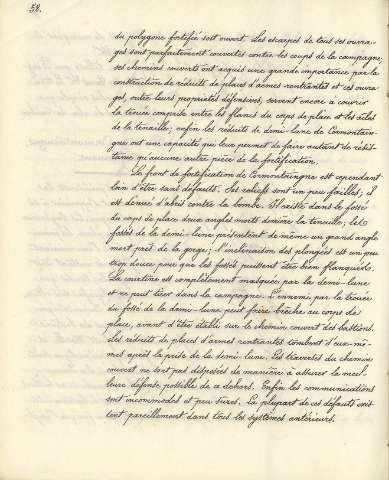 58.
du polygone fortifié soit ouvert. Les escarpes de tous ses ouvra-
ges sont parfaitement couvertes contre les coups de la campagne;
ses chemins couverts ont acquis une grande importance par la
construction de réduits de places d'armes rentrantes et ces ouvra-
ges, outre leurs propriétés défensives, servent encore à couvrir
la trouée comprise entre les flancs du corps de place et les ailes
de la tenaille; enfin les réduits de demi-lune de Cormontain-
gne ont une capacité qui leur permet de faire autant de résis-
tance qu'aucune autre pièce de la fortification.
Le front de fortification de Cormontaingne est cependant
loin d'être sans défauts. Ses reliefs sont un peu faibles; il
est dénué d'abris contre la bombe. Il existe dans le fossé
du corps de place deux angles morts derrière la tenaille; les
fossés de la demi-lune présentent de même un grand angle
mort près de la gorge; l'inclinaison des plongées est un peu
trop douce pour que les fossés puissent être bien flanqués.
La courtine est complètement masquée par la demi-lune
et ne peut tirer dans la campagne. L'ennemi par la trouée
du fossé de la demi-lune peut faire brèche au corps de
place, avant d'être établi sur le chemin couvert des bastions.
Les réduits de places d'armes rentrantes tombent d'eux-mê-
mes après la prise de la demi-lune. Les traverses du chemin
couvert ne sont pas disposées de manière à assurer la meil-
leure défense possible de ce dehors. Enfin les communications
sont incommodes et peu sûres. La plupart de ces défauts exis-
tent pareillement dans tous les systèmes antérieurs.